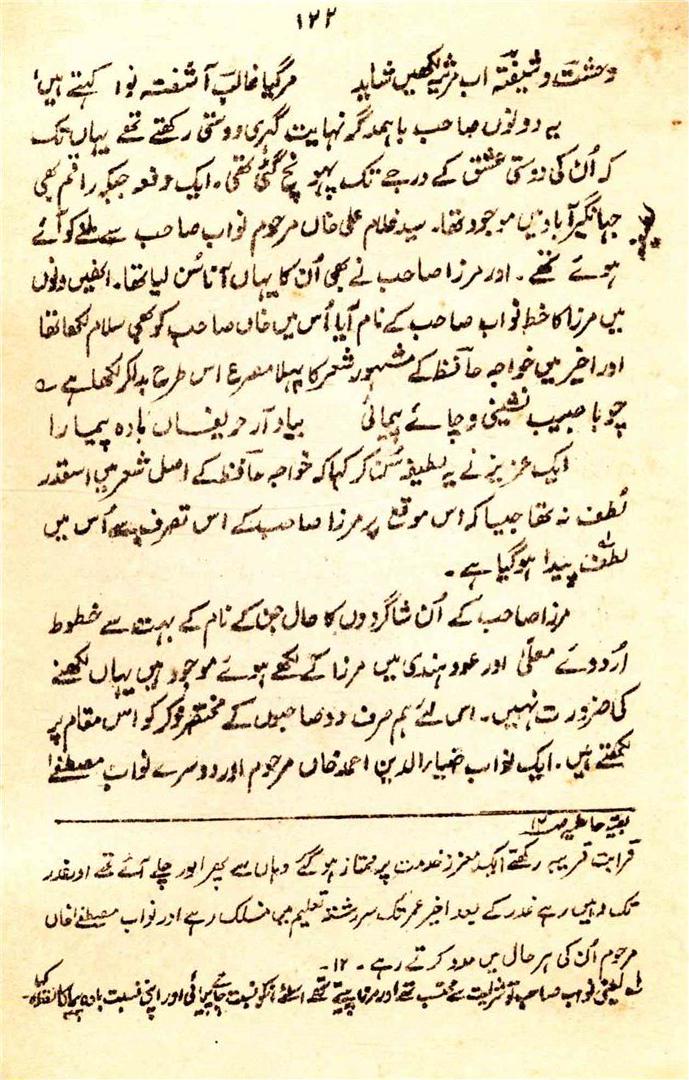 ۱۲۲
وحشت و شیفتہ اب مرثیہ لکھیں شاید مرگیا غالب آشفتہ نوا کہتے ہیں
یہ دونوں صاحب باہمدگر نہایت گہری دوستی رکھتے تھے یہاں تک
کہ اُن کی دوستی عشق کے درجے تک پہونچ گئی تھی۔ ایک دفعہ جبکہ راقم بھی
جہانگیرآباد میں موجود تھا۔ سید غلام علی خاں مرحوم نواب صاحب سے ملنے کو آئے
ہوئے تھے۔ اور مرزا صاحب نے بھی اُن کا یہاں آنا سُن لیا تھا۔ انھیں دنوں
میں مرزا کا خط نواب صاحب کے نام آیا اُس میں خاں صاحب کو بھی سلام لکھا تھا
اور اخیر میں خواجہ حافظ کے مشہور شعر کا پہلا مصرع اس طرح بدلکر لکھا ہے ؎
چو با حبیب نشینی و چائے پیمائی بیاد آر حریفان بادہ پیما را
ایک عزیز نے یہ لطیفہ سُنکر کہا کہ خواجہ حافظ کے اصل شعر میں اسقدر
لُطف نہ تھا جیسا کہ اس موقع پر مرزا صاحب کے اس تصرف سے اُس میں
لطف پیدا ہو گیا ہے۔
مرزا صاحب کے اُن شاگردوں کا حال جن کے نام کے بہت سے خطوط
اُردوئے معلّٰی اور عود ہندی میں مرزا کے لکھے ہوئے موجود ہیں یہاں لکھنے
کی ضرورت نہیں۔ اس لئے ہم صرف دو صاحبوں کے مختصر ذکر کو اس مقام پر
لکھتے ہیں۔ ایک نواب ضیاء الدین احمد خاں مرحوم اور دوسرے نواب مصطفےٰ
بقیہ حاشیہ ص
قرابت قریبہ رکھتے ایک معزز خدمت پر ممتاز ہو گئے وہاں سے پھر اور چلے آئے تھے اور غدر
تک وہیں رہے غدر کے بعد اخیر عمر تک سررشتہ تعلیم میں منسلک رہے اور نواب مصطفےٰ خاں
مرحوم اُن کی ہر حال میں مدد کرتے رہے۔ ۱۲۔
لہ یعنی نواب صاحب تو شراب سے مجتنب تھے اور مرزا پیتے تھے اسلئے انکو نسبت چائے پیمائی اور اپنی نسبت بادہ پیما کا لفظ